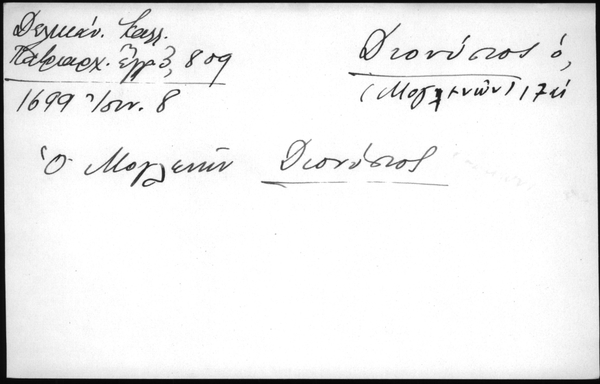 Δελικάν. Καλλ.
Πατριαρχ. Ἔγγρ. 3, 809
1699 Ἰουν. 8
Διονύσιος ὁ,
(Μογλενῶν) 17
Ὁ Μογλενῶν Διονύσιος